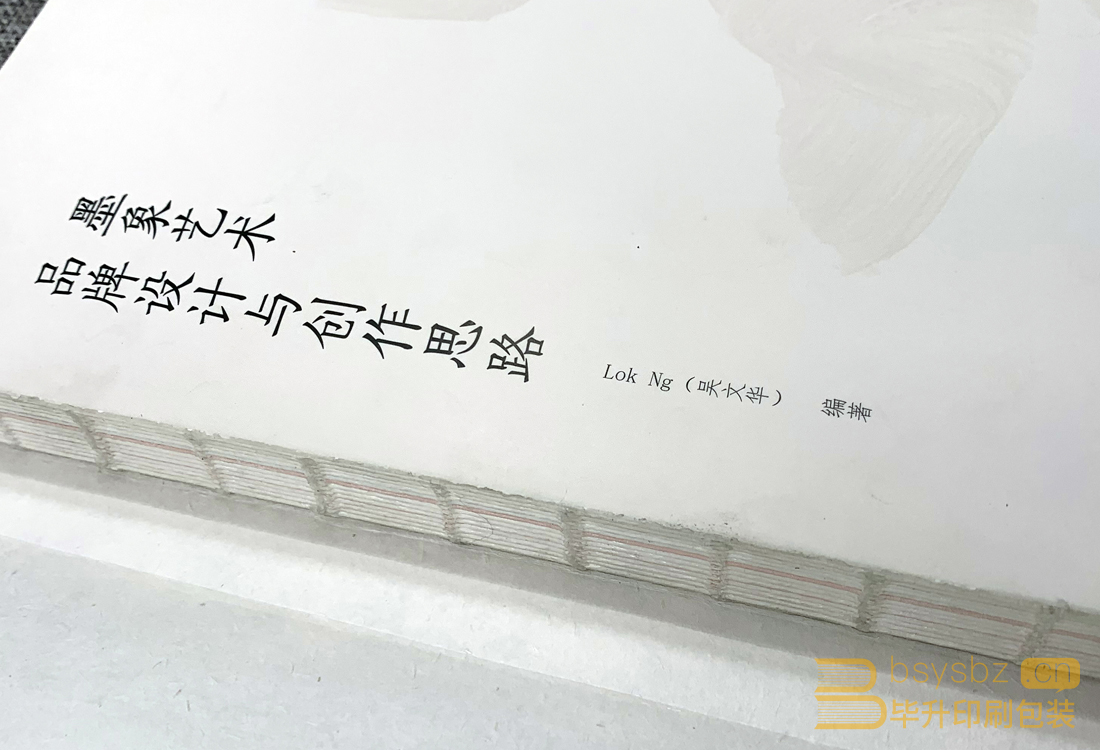 墨象艺术
品牌设计与创作思路
Lok Ng（吴文华） 编著
bsysbz.cn
毕升印刷包装